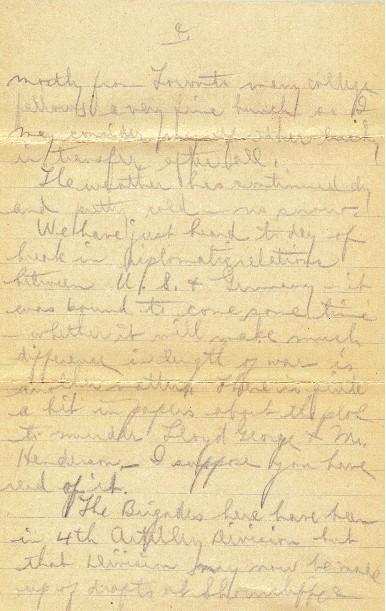 2.
mostly from Toronto many college
fellows, a very fine bunch, so I
may consider myself rather lucky
in transfer after all.
The weather has continued dry
and pretty cold - no snow.
We have just heard to day of
break in diplomatic relations
between U. S. & Germany - it
was bound to come some time
- whether it will make much
difference in length of war is
another matter. There is quite
a bit in papers about the plot
to murder Lloyd George & Mr.
Henderson, - I suppose you have
read of it.
The Brigades here have been
in 4th Artillery Division but
that Division may now be made
up of drafts at Shorncliffe &